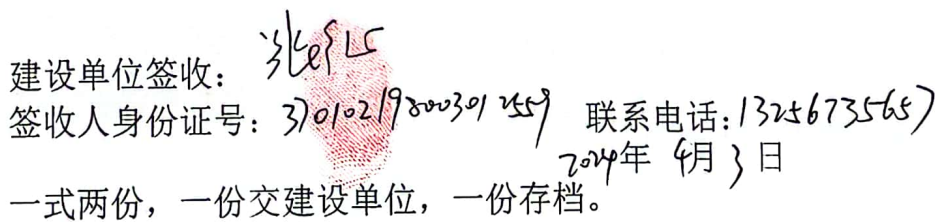 建设单位签收：
签收人身份证号：370102198003012559 联系电话：13256735657
2024年 4月 3日
一式两份，一份交建设单位，一份存档。